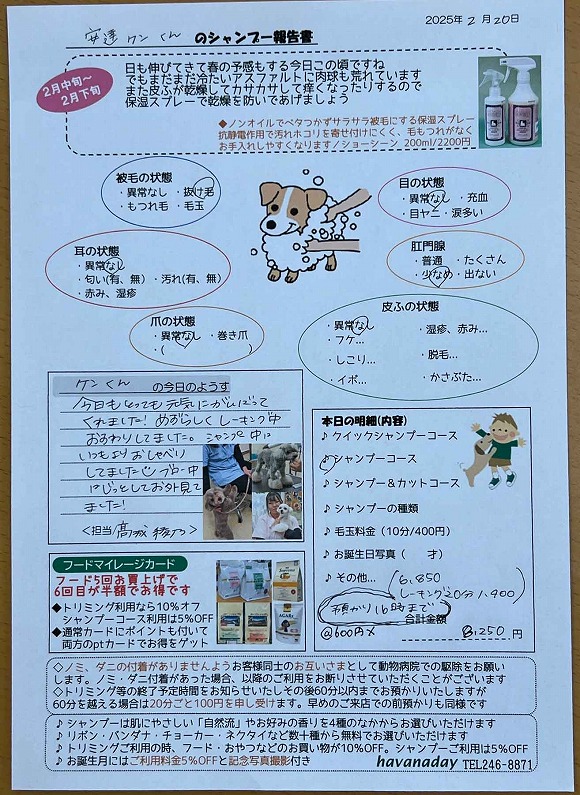 2025年 2 月 20日
安達 ケン くん のシャンプー報告書
2月中旬～
2月下旬
日も伸びてきて春の予感もする今日この頃ですね
でもまだまだ冷たいアスファルトに肉球も荒れています
また皮ふが乾燥してカサカサして痒くなったりするので
保湿スプレーで乾燥を防いであげましょう
◆ノンオイルでベタつかずサラサラ被毛にする保湿スプレー
抗静電作用で汚れホコリを寄せ付けにくく、毛もつれがなく
お手入れしやすくなります／ショーシーン 200ml/2200円
被毛の状態
・異常なし ・抜け毛
・もつれ毛 ・毛玉
目の状態
・異常なし ・充血
・目ヤニ ・涙多い
耳の状態
・異常なし
・匂い(有、無) ・汚れ(有、無)
・赤み、湿疹
肛門腺
・普通 ・たくさん
・少なめ ・出ない
爪の状態
・異常なし ・巻き爪
・(
皮ふの状態
・異常なし ・湿疹、赤み...
・フケ...
・しこり... ・脱毛...
・イボ... ・かさぶた...
ケンくん の今日のようす
今日もとっても元気にがんばって
くれました! めずらしくレーキング中
おすわりしてました。シャンプー中に
いつもよりおしゃべり
してました ブロー中
にじっとしてお外見て
ました!
＜担当 髙城 綾乃＞
本日の明細(内容)
♪ クイックシャンプーコース
♪ シャンプーコース
♪ シャンプー＆カットコース
♪ シャンプーの種類
♪ 毛玉料金（10分/400円）
♪ お誕生日写真（ 才）
♪ その他... (6,850
レーキング20分 1,400)
預かり16時まで
合計金額
@600円× 8,250 円
フードマイレージカード
フード5回お買上げで
6回目が半額でお得です
◆トリミング利用なら10％オフ
シャンプーコース利用は5％OFF
◆通常カードにポイントも付いて
両方のptカードでお得をゲット
◇ノミ、ダニの付着がありませんようお客様同士のお互いさまとして動物病院での駆除をお願い
します。ノミ・ダニ付着があった場合、以降のご利用をお断りさせていただくことがございます
◇トリミング等の終了予定時間をお知らせいたしその後60分以内までお預かりいたしますが
60分を越える場合は20分ごと100円を申し受けます。早めのご来店での前預かりも同様です
♪ シャンプーは肌にやさしい「自然流」やお好みの香りを4種のなかからお選びいただけます
♪ リボン・バンダナ・チョーカー・ネクタイなど数十種から無料でお選びいただけます
♪ トリミングご利用の時、フード・おやつなどのお買い物が10％OFF。シャンプーご利用は5％OFF
♪ お誕生月にはご利用料金5％OFFと記念写真撮影付き havanaday TEL246-8871